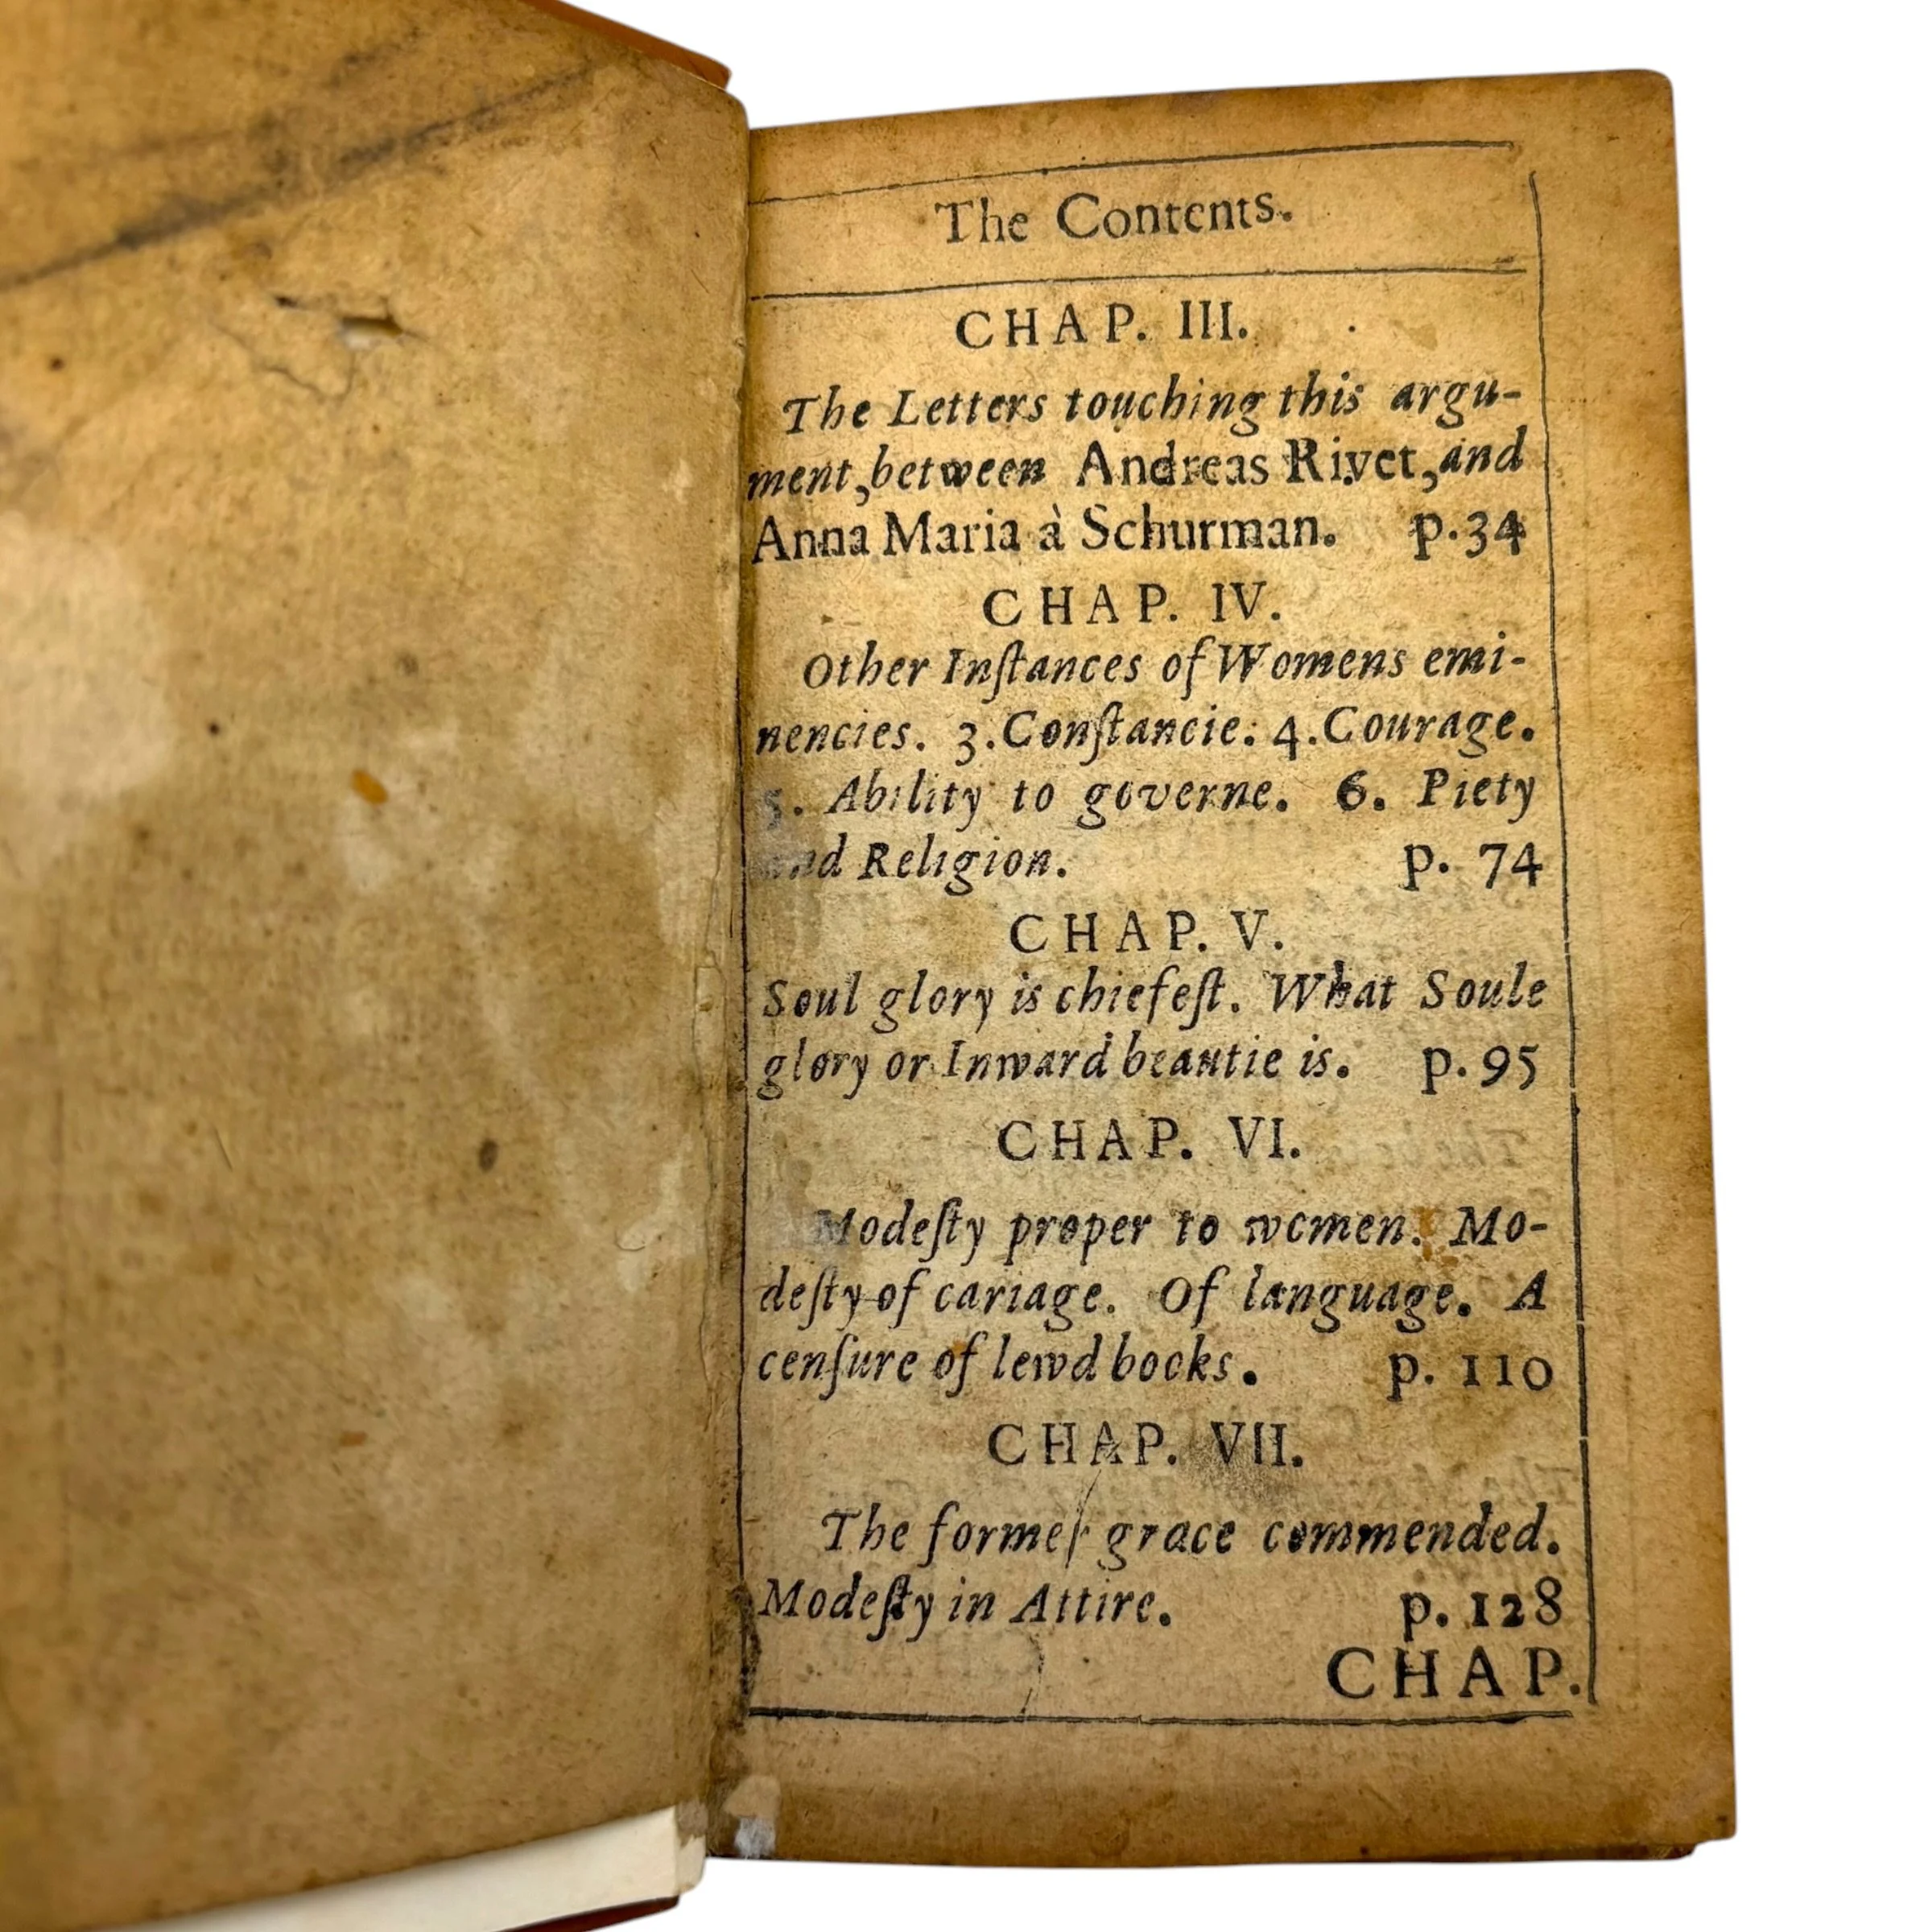 The Contents.
CHAP. III.
The Letters touching this argu-
ment, between Andreas Rivet, and
Anna Maria à Schurman. p. 34
CHAP. IV.
Other Inſtances of Womens emi-
nencies. 3. Conſtancie: 4. Courage.
5. Ability to governe. 6. Piety
and Religion. p. 74
CHAP. V.
Soul glory is chiefeſt. What Soule
glory or Inward beautie is. p. 95
CHAP. VI.
Modeſty proper to women. Mo-
deſty of cariage. Of language. A
cenſure of lewd books. p. 110
CHAP. VII.
The former grace commended.
Modeſty in Attire. p. 128
CHAP.